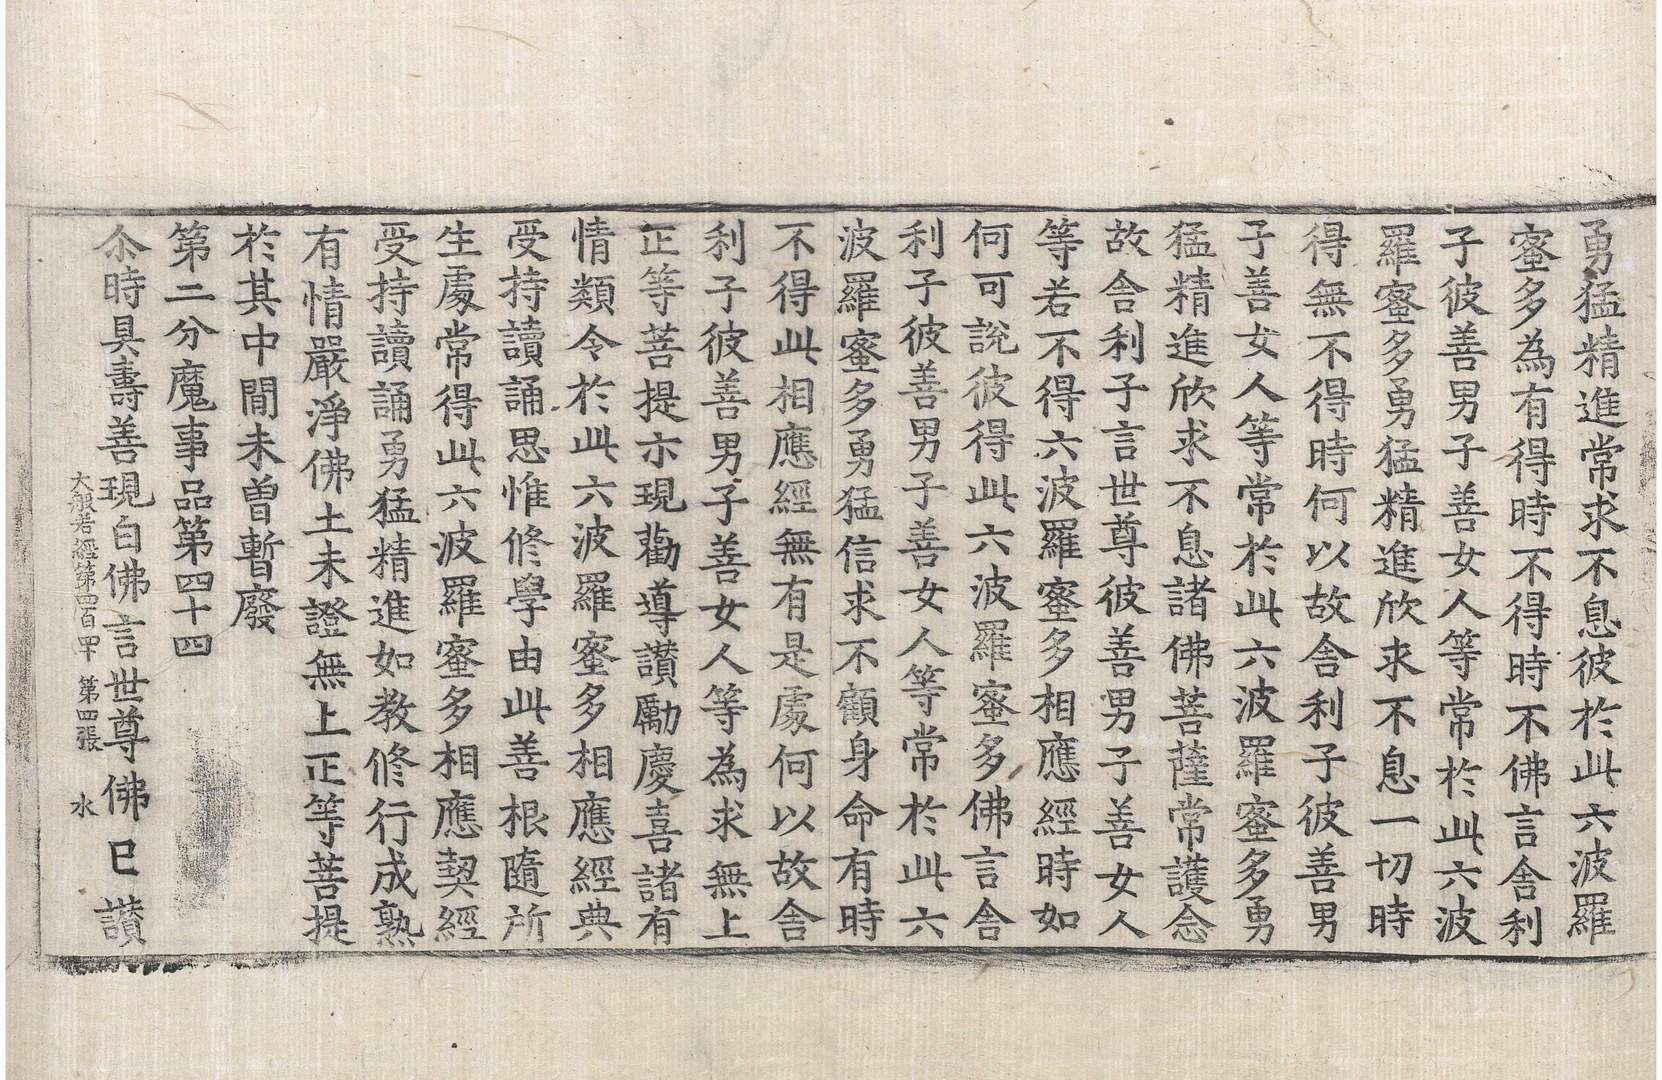 勇猛精進常求不息彼於此六波羅
蜜多為有得時不得時不佛言舍利
子彼善男子善女人等常於此六波
羅蜜多勇猛精進欣求不息一切時
得無不得時何以故舍利子彼善男
子善女人等常於此六波羅蜜多勇
猛精進欣求不息諸佛菩薩常護念
故舍利子言世尊彼善男子善女人
等若不得六波羅蜜多相應經時如
何可說彼得此六波羅蜜多佛言舍
利子彼善男子善女人等常於此六
波羅蜜多勇猛信求不顧身命有時
不得此相應經無有是處何以故舍
利子彼善男子善女人等為求無上
正等菩提示現勸導讚勵慶喜諸有
情類令於此六波羅蜜多相應經典
受持讀誦思惟修學由此善根隨所
生處常得此六波羅蜜多相應契經
受持讀誦勇猛精進如教修行成熟
有情嚴淨佛土未證無上正等菩提
於其中間未曾暫廢
第二分魔事品第四十四
尒時具壽善現白佛言世尊佛已讚
大般若經第四百四十 第四張 水